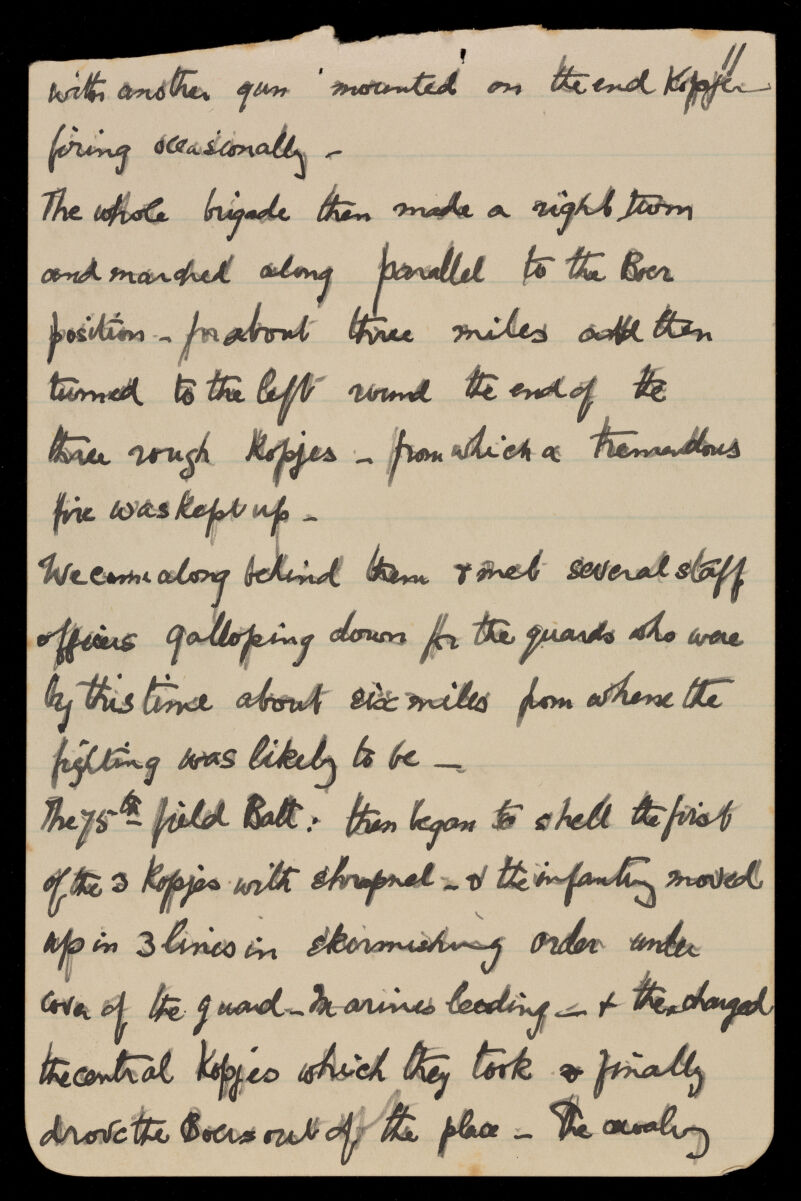 11
with another gun mounted on the end Kopje
firing occasionally -
The whole brigade then made a right turn
and marched along parallel to the Boer
position - for about three miles and then
turned to the left round the end of the
three rough Kopjes - from which a tremendous
fire was kept up -
We came along behind them & met several staff
officers galloping down for the guards who were
by this time about six miles from where the
fighting was likely to be -
The 75th field Batt: then began to shell the first
of the 3 Kopjes with shrapnel - & the infantry moved
up in 3 lines in skirmishing order under
cover of the guard - Marines leading - & then charged
the central Kopjes which they took & finally
drove the Boers out of the place - The cavalry